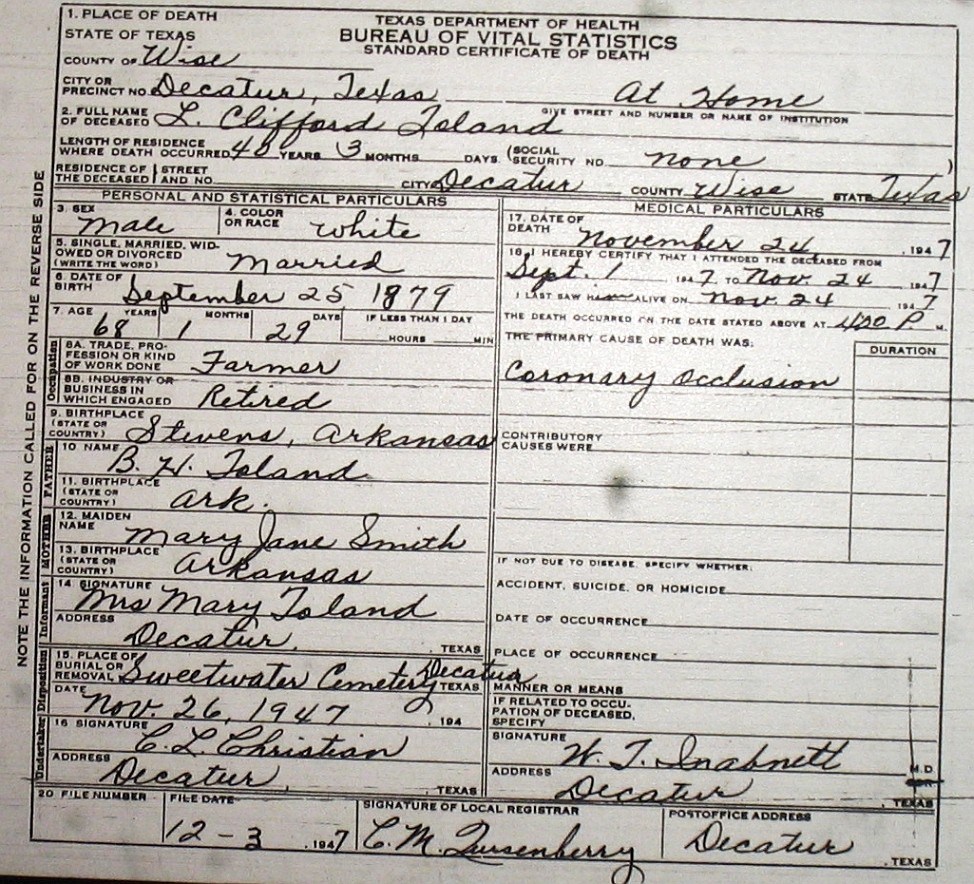 1. PLACE OF DEATH
STATE OF TEXAS
TEXAS DEPARTMENT OF HEALTH
BUREAU OF VITAL STATISTICS
STANDARD CERTIFICATE OF DEATH
COUNTY OF Wise
CITY OR PRECINCT NO. Decatur, Texas At Home
GIVE STREET AND NUMBER OR NAME OF INSTITUTION
2. FULL NAME OF DECEASED L. Clifford Toland
LENGTH OF RESIDENCE WHERE DEATH OCCURRED 48 YEARS 3 MONTHS DAYS. (SOCIAL SECURITY NO. none )
RESIDENCE OF THE DECEASED STREET AND NO. CITY Decatur COUNTY Wise STATE Texas
PERSONAL AND STATISTICAL PARTICULARS
3. SEX Male 4. COLOR OR RACE White
5. SINGLE, MARRIED, WIDOWED OR DIVORCED (WRITE THE WORD) Married
6. DATE OF BIRTH September 25 1879
7. AGE YEARS MONTHS DAYS IF LESS THAN 1 DAY
68 1 29 HOURS MIN
Occupation
8A. TRADE, PROFESSION OR KIND OF WORK DONE Farmer
8B. INDUSTRY OR BUSINESS IN WHICH ENGAGED Retired
9. BIRTHPLACE (STATE OR COUNTRY) Stevens, Arkansas
FATHER
10 NAME B. H. Toland
11. BIRTHPLACE (STATE OR COUNTRY) Ark.
MOTHER
12. MAIDEN NAME Mary Jane Smith
13. BIRTHPLACE (STATE OR COUNTRY) Arkansas
Informant
14 SIGNATURE Mrs Mary Toland
ADDRESS Decatur, TEXAS
Disposition
15. PLACE OF BURIAL OR REMOVAL Sweetwater Cemetery Decatur TEXAS
DATE Nov. 26, 1947 , 194
Undertaker
16 SIGNATURE C. L. Christian
ADDRESS Decatur, , TEXAS
MEDICAL PARTICULARS
17. DATE OF DEATH November 24 , 1947
18. I HEREBY CERTIFY THAT I ATTENDED THE DECEASED FROM
Sept. 1 1947 TO Nov. 24 1947
I LAST SAW him ALIVE ON Nov. 24 1947
THE DEATH OCCURRED ON THE DATE STATED ABOVE AT 400 P M.
THE PRIMARY CAUSE OF DEATH WAS: DURATION
Coronary Occlusion
CONTRIBUTORY CAUSES WERE
IF NOT DUE TO DISEASE, SPECIFY WHETHER:
ACCIDENT, SUICIDE, OR HOMICIDE
DATE OF OCCURRENCE
PLACE OF OCCURRENCE
MANNER OR MEANS
IF RELATED TO OCCUPATION OF DECEASED, SPECIFY
SIGNATURE W. T. Inabnett M.D
ADDRESS Decatur , TEXAS
20 FILE NUMBER FILE DATE SIGNATURE OF LOCAL REGISTRAR POSTOFFICE ADDRESS
12-3 , 1947 C. M. Quisenberry Decatur , TEXAS
NOTE THE INFORMATION CALLED FOR ON THE REVERSE SIDE